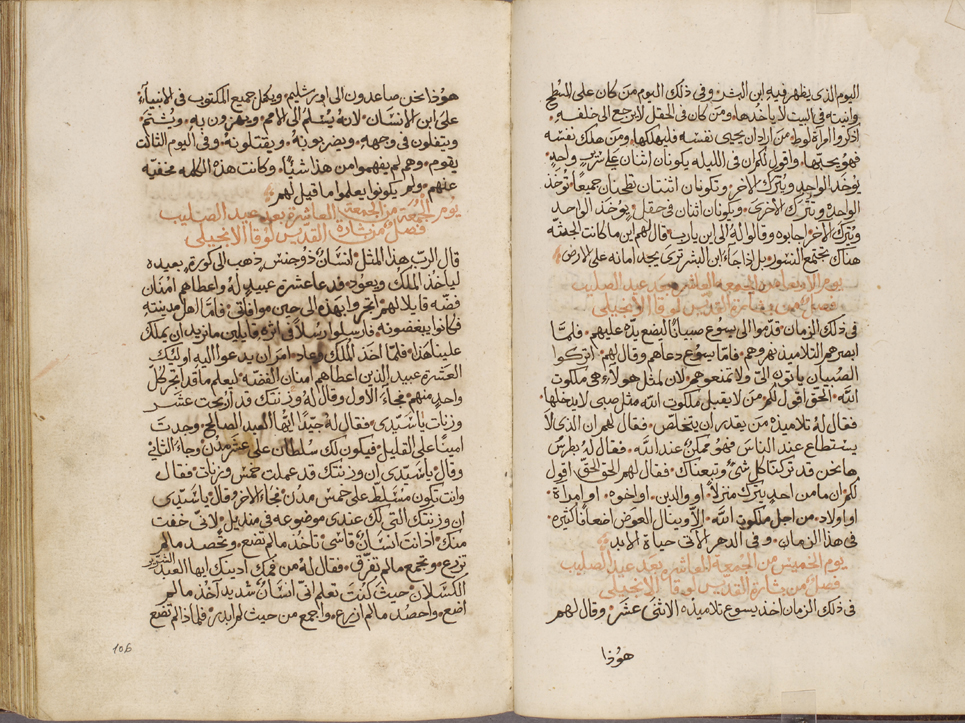 اليوم الذى يظهر فيه ابن البشر وفى ذلك اليوم من كان على السطح
وانيته فى البيت لا ياخذها ومن كان فى الحقل لا يرجع الى خلفه
اذكروا امراة لوط من اراد ان يحيى نفسه فليهلكها ومن هلك نفسه
فهو يحييها واقول لكم ان فى الليله يكونان اثنان على سرير واحد
يوخذ الواحد ويترك الاخر وتكونان اثنتان تطحنان جميعا توخذ
الواحده وتترك الاخرى ويكونان اثنان فى حقل يوخذ الواحد
ويترك الاخر اجابوه وقالوا له الى اين يارب قال لهم اين ما كانت الجثه
هناك تجتمع النسور بل اذا جاء ابن البشر ترى يجد امانه على الارض
يوم الاربعا من الجمعه العاشره بعد عيد الصليب
فصل من بشارة القديس لوقا الانجيلى
فى ذلك الزمان قدموا الى يسوع صبيانا ليضع يده عليهم فلما
ابصرهم التلاميذ نهروهم فاما يسوع دعاهم وقال لهم اتركوا
الصبيان ياتون الى ولا تمنعوهم لان لمثل هولاء هى ملكوت
الله الحق اقول لكم من لا يقبل ملكوت الله مثل صبى لا يدخلها
فقال له تلاميذه من يقدر ان يتخلص فقال لهم ان الذى لا
يستطاع عند الناس فهو ممكن عند الله فقال له بطرس
ها نحن قد تركنا كل شى وتبعناك فقال لهم الحق الحق اقول
لكم ان ما من احد يترك منزلا او والدين او اخوه او امراة
او اولاد من اجل ملكوت الله الا وينال العوض اضعافا كثيره
فى هذا الزمان وفى الدهر الاتى حياة الابد
يوم الخميس من الجمعه العاشره بعد عيد الصليب
فصل من بشارة القديس لوقا الانجيلى
فى ذلك الزمان اخذ يسوع تلاميذه الاثنى عشر وقال لهم
هوذا
هوذا نحن صاعدون الى اورشليم ويكمل جميع المكتوب فى الانبياء
على ابن الانسان لانه يسلم الى الامم ويهزون به ويشتم
ويتفلون فى وجهه ويضربونه ويقتلونه وفى اليوم الثالث
يقوم وهم لم يفهموا من هذا شيئا وكانت هذه الكلمه مخفيه
عنهم ولم يكونوا يعلموا ما قيل لهم
يوم الجمعه من الجمعه العاشره بعد عيد الصليب
فصل من بشارة القديس لوقا الانجيلى
قال الرب هذا المثل انسان ذو جنس ذهب الى كورة بعيده
لياخذ الملك ويعود فدعا عشرة عبيد له واعطاهم امنان
فضه قايلا لهم اتجروا بهذه الى حين موافاتى فاما اهل مدينته
فكانوا يبغضونه فارسلوا رسلا فى اثره قايلين ما نريد ان يملك
علينا هذا فلما اخذ الملك وعاد امر ان يدعوا اليه اوليك
العشرة عبيد الذين اعطاهم امنان الفضه ليعلم ما قد اتجر كل
واحد منهم فجاء الاول وقال له وزنتك قد اربحت عشر
وزنات ياسيدى فقال له جيدا ايها العبد الصالح وجدت
امينا على القليل فيكون لك سلطان على عشر مدن وجاء الثانى
وقال ياسيدى ان وزنتك قد عملت خمس وزنات فقال
وانت تكون مسلط على خمس مدن فجاء الاخر وقال ياسيدى
ان وزنتك التى لك عندى موضوعه فى منديل لانى خفت
منك اذ انت انسان قاسى تاخذ ما لم تضع وتحصد ما لم
تزرع وتجمع ما لم تفرق فقال له من فمك ادينك ايها العبد الشرير
الكسلان حيث كنت تعلم انى انسان شديد آخذ ما لم
اضع واحصد ما لم ازرع واجمع من حيث لم ابدر فلماذا لم تضع
106